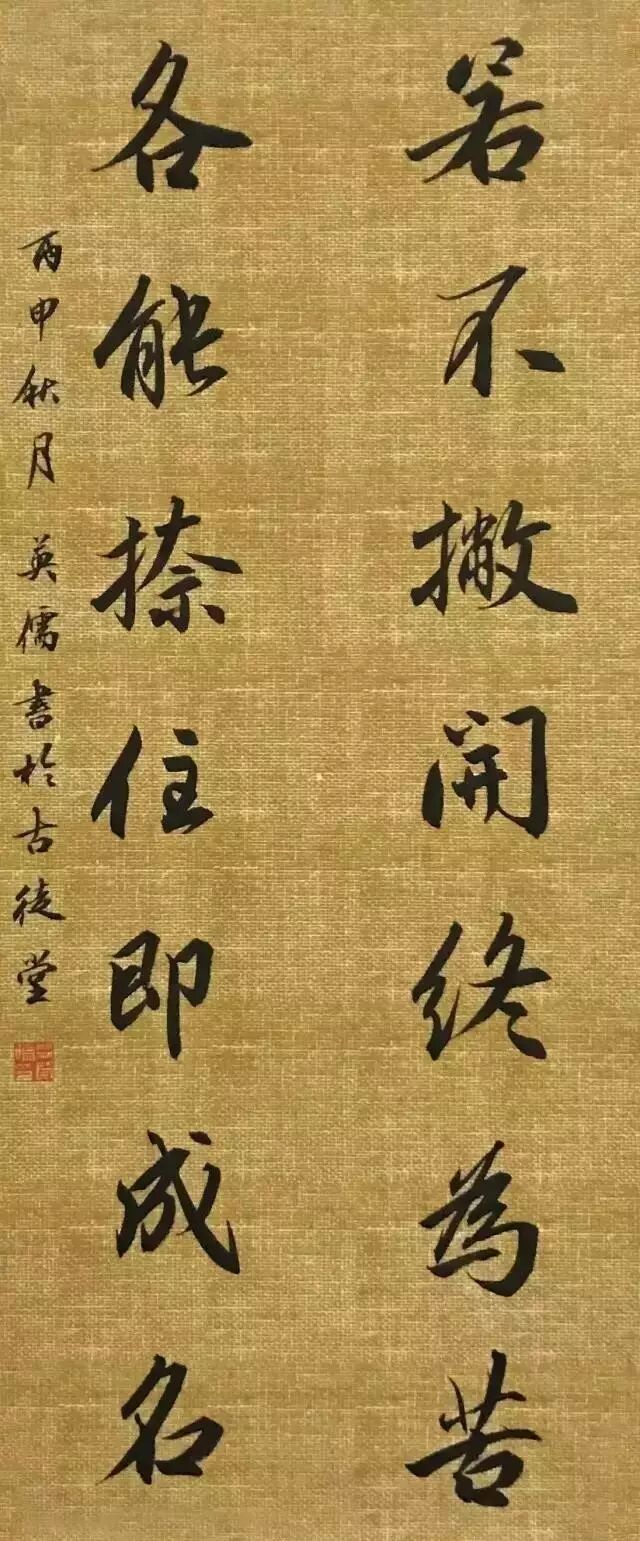 若不撇開终為苦
各能捺住即成名
丙申秋月英儒書於古徒堂